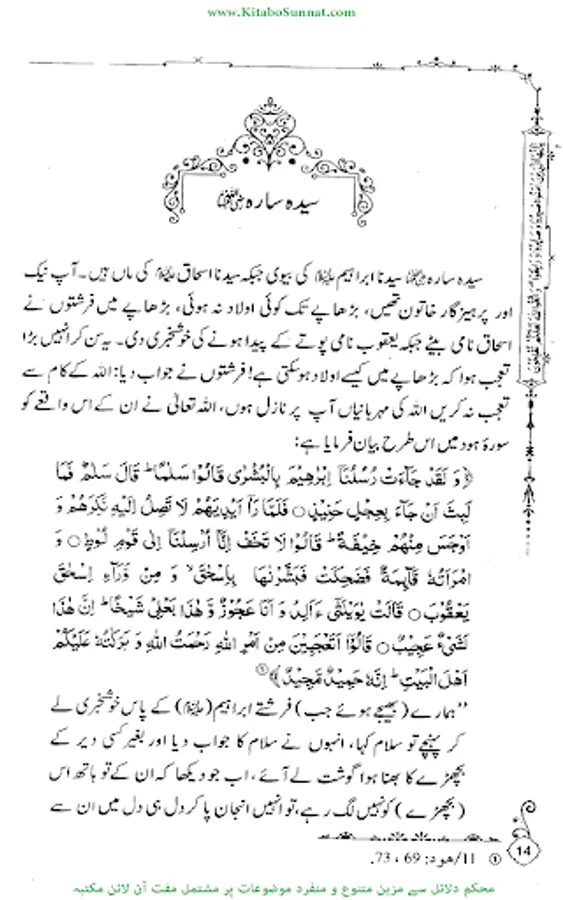 www.KitaboSunnat.com
سیدہ سارہ
سیدہ سارہ سیدنا ابراہیم کی بیوی جبکہ سیدنا اسحاق کی ماں ہیں۔ آپ نیک
اور پرہیز گار خاتون تھیں، بڑھاپے تک کوئی اولاد نہ ہوئی، بڑھاپے میں فرشتوں نے
اسحاق نامی بیٹے جبکہ یعقوب نامی پوتے کے پیدا ہونے کی خوشخبری دی۔ یہ سن کر انہیں بڑا
تعجب ہوا کہ بڑھاپے میں کیسے اولاد ہوسکتی ہے! فرشتوں نے جواب دیا: اللہ کے کام سے
تعجب نہ کریں اللہ کی مہربانیاں آپ پر نازل ہوں، اللہ تعالیٰ نے ان کے اس واقعے کو
سورۂ ہود میں اس طرح بیان فرمایا ہے:
﴿وَ لَقَدْ جَآءَتْ رُسُلُنَاۤ اِبْرٰهِیْمَ بِالْبُشْرٰى قَالُوْا سَلٰمًا ؕ قَالَ سَلٰمٌ فَمَا
لَبِثَ اَنْ جَآءَ بِعِجْلٍ حَنِیْذٍ ○ فَلَمَّا رَاٰۤ اَیْدِیَهُمْ لَا تَصِلُ اِلَیْهِ نَكِرَهُمْ وَ
اَوْجَسَ مِنْهُمْ خِیْفَةً ؕ قَالُوْا لَا تَخَفْ اِنَّاۤ اُرْسِلْنَاۤ اِلٰى قَوْمِ لُوْطٍ ○ وَ
امْرَاَتُهٗ قَآىِٕمَةٌ فَضَحِكَتْ فَبَشَّرْنٰهَا بِاِسْحٰقَ ۙ وَ مِنْ وَّرَآءِ اِسْحٰقَ
یَعْقُوْبَ ○ قَالَتْ یٰوَیْلَتٰۤى ءَاَلِدُ وَ اَنَا عَجُوْزٌ وَّ هٰذَا بَعْلِیْ شَیْخًا ؕ اِنَّ هٰذَا
لَشَیْءٌ عَجِیْبٌ ○ قَالُوْۤا اَتَعْجَبِیْنَ مِنْ اَمْرِ اللّٰهِ رَحْمَتُ اللّٰهِ وَ بَرَكٰتُهٗ عَلَیْكُمْ
اَهْلَ الْبَیْتِ ؕ اِنَّهٗ حَمِیْدٌ مَّجِیْدٌ﴾ ①
”ہمارے (بھیجے ہوئے جب) فرشتے ابراہیم ( ) کے پاس خوشخبری لے
کر پہنچے تو سلام کہا، انہوں نے سلام کا جواب دیا اور بغیر کسی دیر کے
بچھڑے کا بھنا ہوا گوشت لے آئے، اب جو دیکھا کہ ان کے تو ہاتھ اس
(بچھڑے) کو نہیں لگ رہے، تو انہیں انجان پا کر دل ہی دل میں ان سے
① 11/ھود: 69، 73.
14
محکم دلائل سے مزین متنوع و منفرد موضوعات پر مشتمل مفت آن لائن مکتبہ